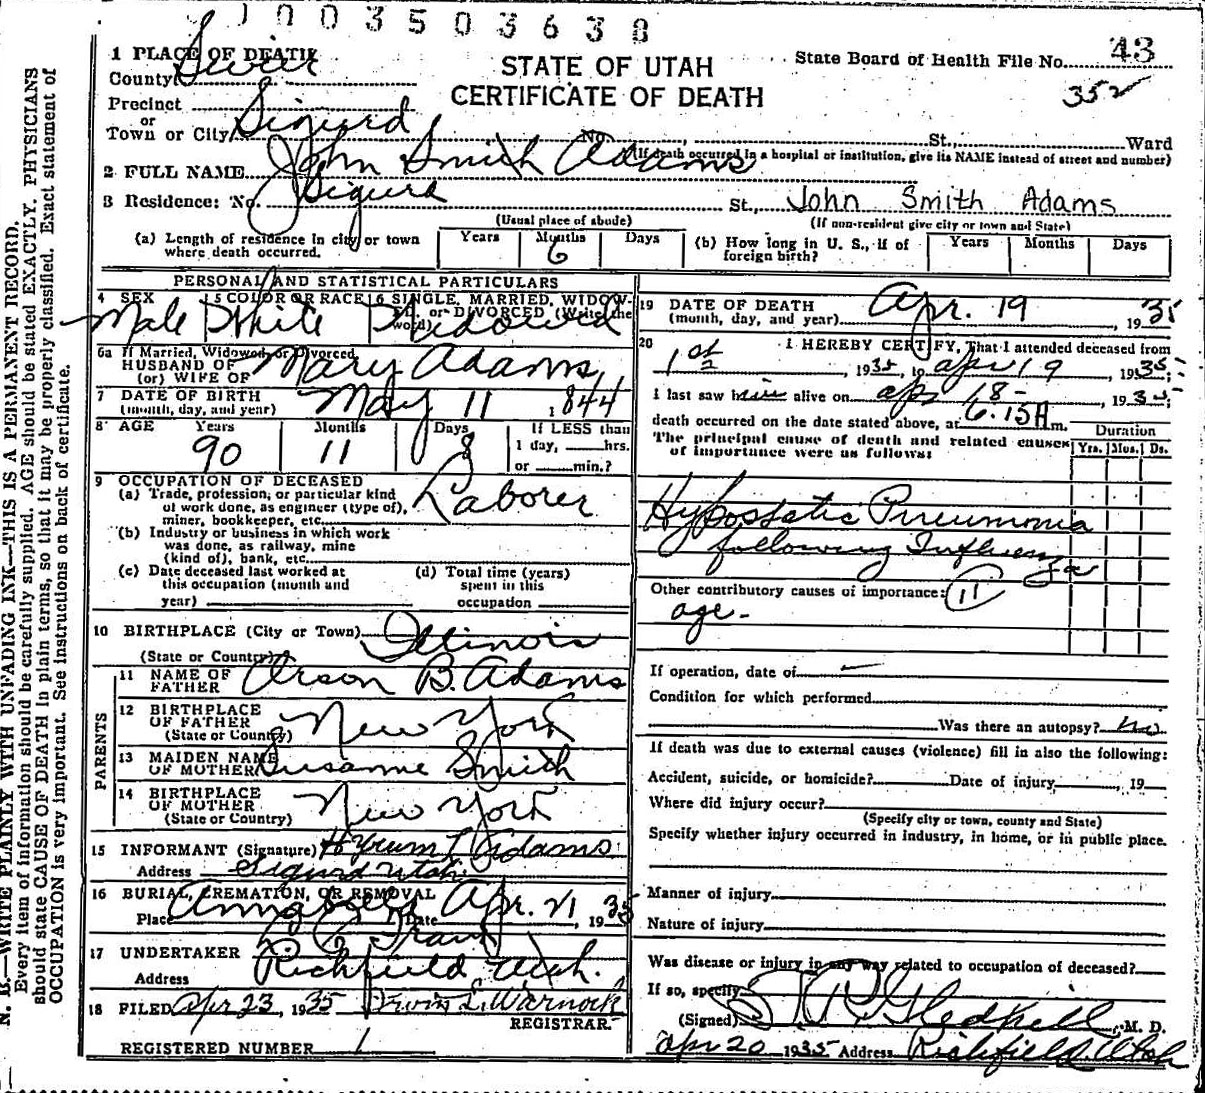 1003503638
1 PLACE OF DEATH
County Sevier
STATE OF UTAH
CERTIFICATE OF DEATH
State Board of Health File No. 43
352
Precinct
or
Town or City Sigurd No. St., Ward
(If death occurred in a hospital or institution, give its NAME instead of street and number)
2 FULL NAME John Smith Adams
3 Residence: No. Sigurd St., John Smith Adams
(Usual place of abode) (If non-resident give city or town and State)
(a) Length of residence in city or town where death occurred. Years Months 6 Days (b) How long in U. S., if of foreign birth? Years Months Days
PERSONAL AND STATISTICAL PARTICULARS
4 SEX 5 COLOR OR RACE 6 SINGLE, MARRIED, WIDOWED, or DIVORCED (Write the word)
Male White Widowed
6a If Married, Widowed, or Divorced
HUSBAND OF
(or) WIFE OF Mary Adams
7 DATE OF BIRTH
(month, day, and year) May 11 1844
8 AGE Years Months Days If LESS than
90 11 8 1 day, hrs.
or min.?
9 OCCUPATION OF DECEASED
(a) Trade, profession, or particular kind
of work done, as engineer (type of),
miner, bookkeeper, etc. Laborer
(b) Industry or business in which work
was done, as railway, mine
(kind of), bank, etc.
(c) Date deceased last worked at
this occupation (month and
year)
(d) Total time (years)
spent in this
occupation
10 BIRTHPLACE (City or Town) Illinois
(State or Country)
PARENTS
11 NAME OF
FATHER Orson B. Adams
12 BIRTHPLACE
OF FATHER New York
(State or Country)
13 MAIDEN NAME
OF MOTHER Susanne Smith
14 BIRTHPLACE
OF MOTHER New York
(State or Country)
15 INFORMANT (Signature) Hyrum L Adams
Address Sigurd Utah
16 BURIAL, CREMATION, OR REMOVAL
Place Annabella Date Apr. 21, 1935
17 UNDERTAKER
Address Richfield Utah.
18 FILED Apr 23, 1935 Irvin L. Warnock
REGISTRAR.
REGISTERED NUMBER 1
19 DATE OF DEATH
(month, day, and year) Apr. 19, 1935
20 I HEREBY CERTIFY, That I attended deceased from
1st, 1935, to apr 19, 1935;
I last saw him alive on apr 18-, 1935;
death occurred on the date stated above, at 6.15A m.
The principal cause of death and related causes
of importance were as follows:
Duration
Yrs. Mos. Ds.
Hypostatic Pneumonia
following Influenza
Other contributory causes of importance: 11
age-
If operation, date of
Condition for which performed
Was there an autopsy? no
If death was due to external causes (violence) fill in also the following:
Accident, suicide, or homicide? Date of injury, 19
Where did injury occur?
(Specify city or town, county and State)
Specify whether injury occurred in industry, in home, or in public place.
Manner of injury
Nature of injury
Was disease or injury in any way related to occupation of deceased?
If so, specify
(Signed) Gledhill, M. D.
Apr 20 1935 Address Richfield Utah
N. B.—WRITE PLAINLY WITH UNFADING INK—THIS IS A PERMANENT RECORD.
Every item of information should be carefully supplied. AGE should be stated EXACTLY. PHYSICIANS
should state CAUSE OF DEATH in plain terms, so that it may be properly classified. Exact statement of
OCCUPATION is very important. See instructions on back of certificate.